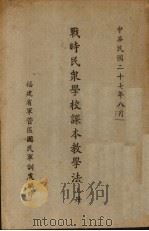 中華民國二十七年八月
戰時民衆學校課本教學法
福建省軍管區國民軍訓處